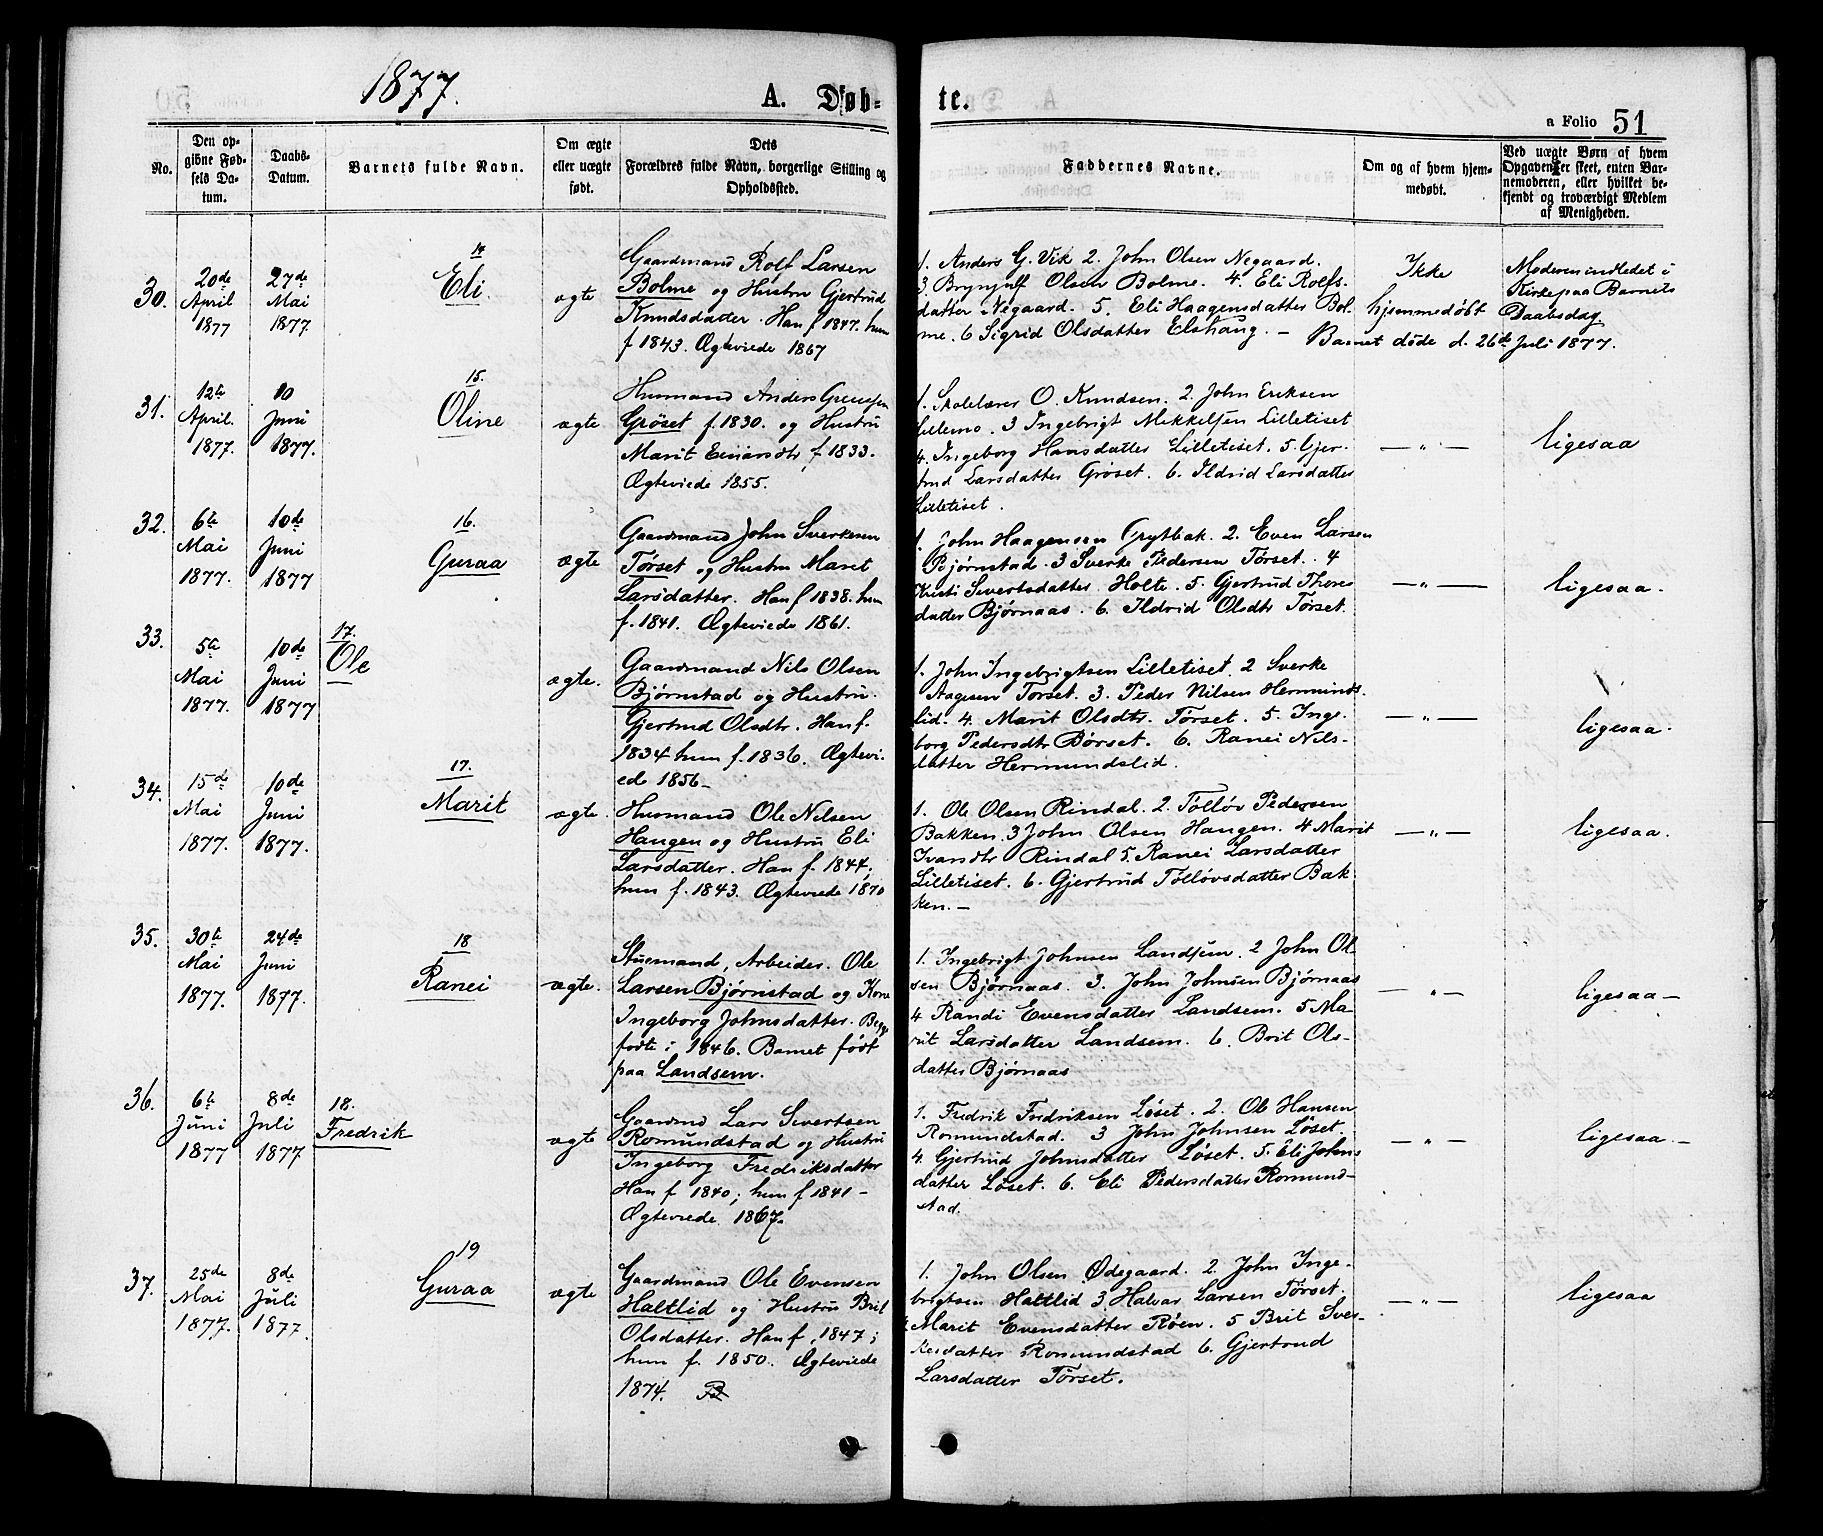 1877.
A. Døb-
te.
a Folio 51
No.
Den op-
givne Fød-
sels Da-
tum.
Daabs-
Datum.
Barnets fulde Navn.
Om ægte
eller uægte
født.
Dets
Forældres fulde Navn, borgerlige Stilling og
Opholdssted.
Faddernes Navne.
Om og af hvem hjem-
medøbt.
Ved uægte Børn af hvem
Opgaven er skeet, enten Bar-
nemoderen, eller hvilket be-
kjendt og troværdigt Medlem
af Menigheden.
30.
20de
April
1877
27de
Mai
1877
14
Eli
ægte
Gaardmand Rolf Larsen
Bolme og Hustru Gjertrud
Knudsdatter. Han f 1847. hun
f 1843. Ægteviede 1867
1. Anders G. Vik 2. John Olsen Negaard.
3 Brynjulf Olsen Bolme. 4. Eli Rolfs-
datter Negaard. 5. Eli Haagensdatter Bol-
me. 6 Sigrid Olsdatter Elshaug. –
Ikke
hjemmedøbt
Moderen indledet i
Kirke paa Barnets
Daabsdag.
Barnet døde d. 26de Juli 1877.
31.
12te
April.
1877.
10
Juni
1877.
15.
Oline
ægte
Husmand Anders
Grøset f. 1830. og Hustru
Marit Einarsdtr, f 1833.
Ægteviede 1855.
1. Skolelærer O. Knudsen. 2. John Eriksen
Lillemo. 3 Ingebrigt Mikkelsen Lilletiset
4. Ingeborg Hansdatter Lilletiset. 5. Gjer-
trud Larsdatter Grøset. 6. Ildrid Larsdatter
Lilletiset.
— „ —
ligesaa
32.
6te
Mai
1877.
10de
Juni
1877
16.
Guraa
ægte
Gaardmand John Sverkesen
Tørset og Hustru Marit
Larsdatter. Han f 1838. hun
f. 1841. Ægteviede 1861.
1. John Haagensen Grytbak. 2. Even Larsen
Bjørnstad. 3 Sverke Pedersen Tørset. 4
Kristi Sivertsdatter Holte. 5. Gjertrud Thores
datter Bjørnaas. 6. Ildrid Olsdtr Tørset.
— „ —
ligesaa.
33.
5te
Mai
1877.
10de
Juni
1877
17.
Ole
ægte.
Gaardmand Nils Olsen
Bjørnstad og Hustru
Gjertrud Olsdtr. Han f.
1834 hun f. 1836. Ægtevi-
ede 1856-
1. John Ingebrigtsen Lilletiset. 2 Sverke
Aagesen Tørset. 3. Peder Nilsen Hermunds-
lid. 4. Marit Olsdtr. Tørset. 5. Inge-
borg Pedersdtr Børset. 6. Ranei Nils-
datter Hermundslid.
— „ —
ligesaa.
34.
15de
Mai
1877.
10de
Juni
1877.
17.
Marit
ægte.
Husmand Ole Nilsen
Haugen og Hustru Eli
Larsdatter. Han f. 1844;
hun f. 1843. Ægteviede 1870
1. Ole Olsen Rindal. 2. Tølløv Pedersen
Bakken. 3 John Olsen Haugen. 4 Marit
Ivarsdtr Rindal 5. Ranei Larsdatter
Lilletiset. 6. Gjertrud Tølløvsdatter Bak
ken. –
— „ —
ligesaa.
35.
30te
Mai
1877.
24de
Juni
1877.
18
Ranei
ægte.
Stuemand, Arbeider. Ole
Larsen Bjørnstad og Kone
Ingeborg Johnsdatter. Begge
fødte i 1846. Barnet født
paa Landsem.
1. Ingebrigt Johnsen Landsem. 2 John Ol
sen Bjørnaas. 3. John Johnsen Bjørnaas
4 Randi Evensdatter Landsem. 5 Ma-
rit Larsdatter Landsem. 6. Brit Ols-
datter Bjørnaas
— „ —
ligesaa –
36.
6te
Juni
1877
8de
Juli
1877
18.
Fredrik
ægte
Gaardmd Lars Sivertsen
Romundstad og Hustru
Ingeborg Fredriksdatter
Han f 1840; hun f 1841 –
Ægteviede 1867.
1. Fredrik Fredriksen Løset. 2. Ole Hansen
Romundstad. 3 John Johnsen Løset.
4. Gjertrud Johnsdatter Løset. 5. Eli Johns
datter Løset. 6. Eli Pedersdatter Romund-
stad.
— „ —
ligesaa –
37.
25de
Mai
1877.
8de
Juli
1877.
19
Guraa
ægte
Gaardmand Ole Evensen
Haltlid og Hustru Brit
Olsdatter. Han f, 1847;
hun f. 1850. Ægteviede
1874.
1. John Olsen Ødegaard. 2. John Inge-
brigtsen Haltlid 3 Halvar Larsen Tørset.
4. Marit Evensdatter Røen. 5 Brit Sver-
kesdatter Romundstad 6. Gjertrud
Larsdatter Tørset.
— „ —
ligesaa